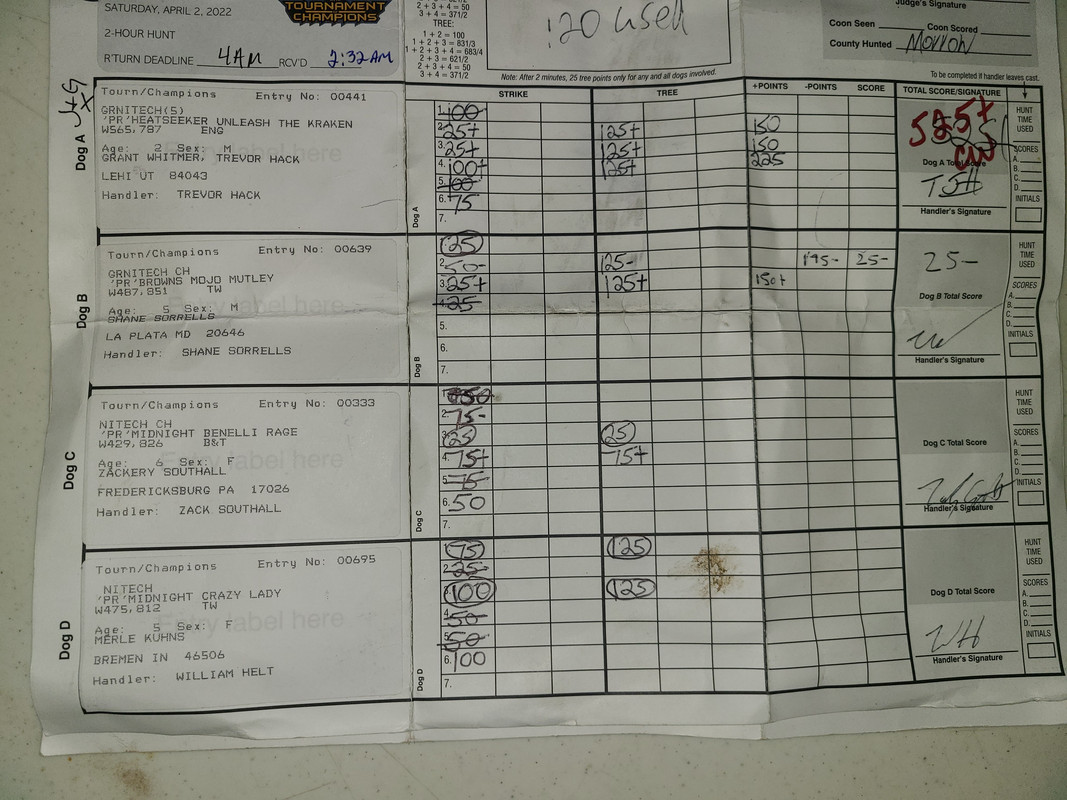 SATURDAY, APRIL 2, 2022
TOURNAMENT
CHAMPIONS
2-HOUR HUNT
R'TURN DEADLINE 4AM RCV'D 2:32AM
2 + 3 + 4 = 50
3 + 4 = 371/2
TREE:
1 + 2 = 100
1 + 2 + 3 = 831/3
1 + 2 + 3 + 4 = 683/4
2 + 3 = 621/2
2 + 3 + 4 = 50
3 + 4 = 371/2
:20 used
Note: After 2 minutes, 25 tree points only for any and all dogs involved.
Judge's Signature
Coon Seen Coon Scored
County Hunted Morrow
To be completed if handler leaves cast.
STRIKE TREE +POINTS -POINTS SCORE TOTAL SCORE/SIGNATURE
Dog A
Tourn/Champions Entry No: 00441
GRNITECH(5)
'PR'HEATSEEKER UNLEASH THE KRAKEN
W565,787 ENG
Age: 2 Sex: M
GRANT WHITMER, TREVOR HACK
LEHI UT 84043
Handler: TREVOR HACK
Dog A
1. 100
2. 25+ 125+ 150
3. 25+ 125+ 150
4. 100+ 125+ 225
5. 100
6. 75
7.
525+
CW
Dog A Total Score
TJH
Handler's Signature
HUNT
TIME
USED
SCORES
A.
B.
C.
D.
INITIALS
Dog B
Tourn/Champions Entry No: 00639
GRNITECH CH
'PR'BROWNS MOJO MUTLEY
W487,851 TW
Age: 5 Sex: M
SHANE SORRELLS
LA PLATA MD 20646
Handler: SHANE SORRELLS
Dog B
25
2. 50- 125- 175- 25-
3. 25+ 125+ 150+
4. 25
5.
6.
7.
25-
Dog B Total Score
Handler's Signature
HUNT
TIME
USED
SCORES
A.
B.
C.
D.
INITIALS
Dog C
Tourn/Champions Entry No: 00333
NITECH CH
'PR'MIDNIGHT BENELLI RAGE
W429,826 B&T
Age: 6 Sex: F
ZACKERY SOUTHALL
FREDERICKSBURG PA 17026
Handler: ZACK SOUTHALL
Dog C
1. 50
2. 75-
25 25
4. 75+ 75+
5. 75
6. 50
7.
Dog C Total Score
Handler's Signature
HUNT
TIME
USED
SCORES
A.
B.
C.
D.
INITIALS
Dog D
Tourn/Champions Entry No: 00695
NITECH
'PR'MIDNIGHT CRAZY LADY
W475,812 TW
Age: 5 Sex: F
MERLE KUHNS
BREMEN IN 46506
Handler: WILLIAM HELT
Dog D
75 125
2. 25
100 125
4. 50
5. 50
6. 100
7.
Dog D Total Score
WH
Handler's Signature
HUNT
TIME
USED
SCORES
A.
B.
C.
D.
INITIALS